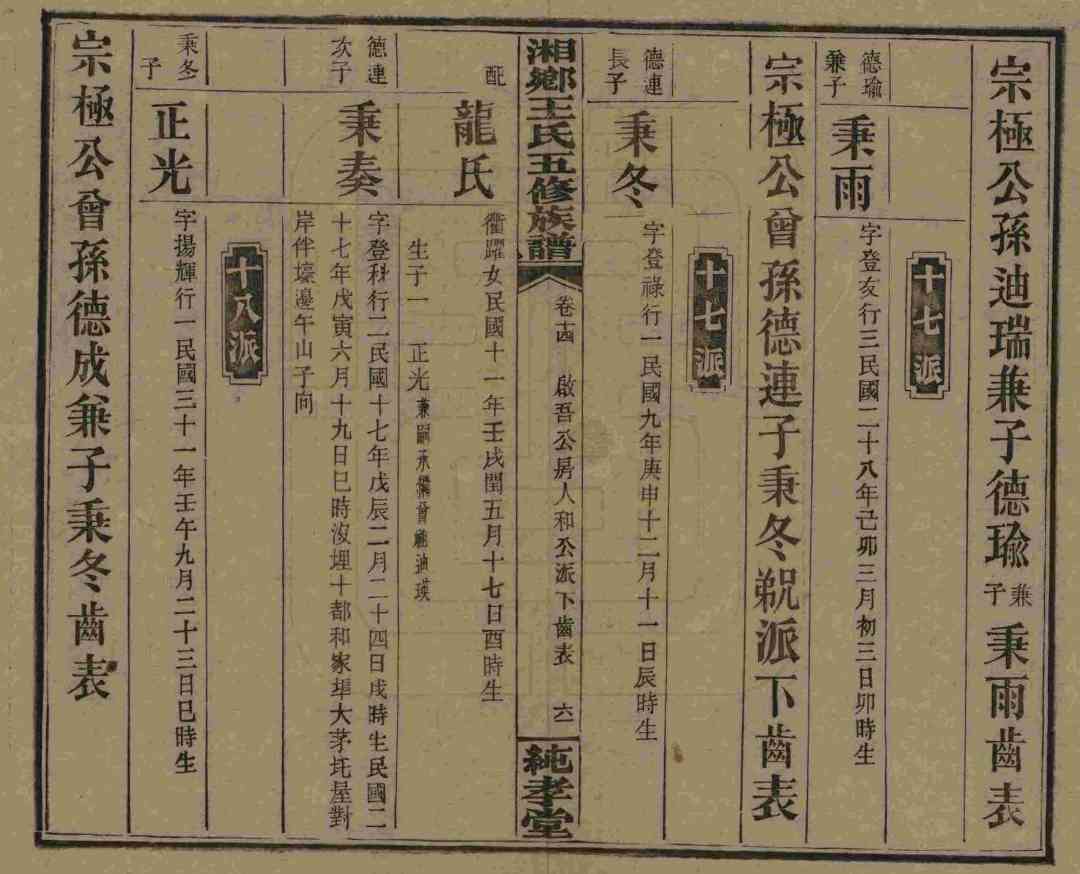 宗極公孫迪瑞兼子德瑜兼子秉雨齒表
十七派
德瑜兼子
秉雨
字登亥行三民國二十八年己卯三月初三日卯時生
宗極公曾孫德連子秉冬覡派下齒表
十七派
德連長子
秉冬
字登祿行一民國九年庚申十二月十一日辰時生
湘鄉王氏五修族譜
卷十四 啟吾公房人和公派下齒表 六一
純孝堂
配
龍氏
衢躍女民國十一年壬戌閏五月十七日酉時生
生子一 正光兼嗣承曾祖迪瑛
德連次子
秉奏
字登科行二民國十七年戊辰二月二十四日戌時生民國二
十七年戊寅六月十九日巳時歿埋十都和家埠大茅坨屋對
岸伴壕邊午山子向
十八派
秉冬子
正光
字揚輝行一民國三十一年壬午九月二十三日巳時生
宗極公曾孫德成兼子秉冬齒表